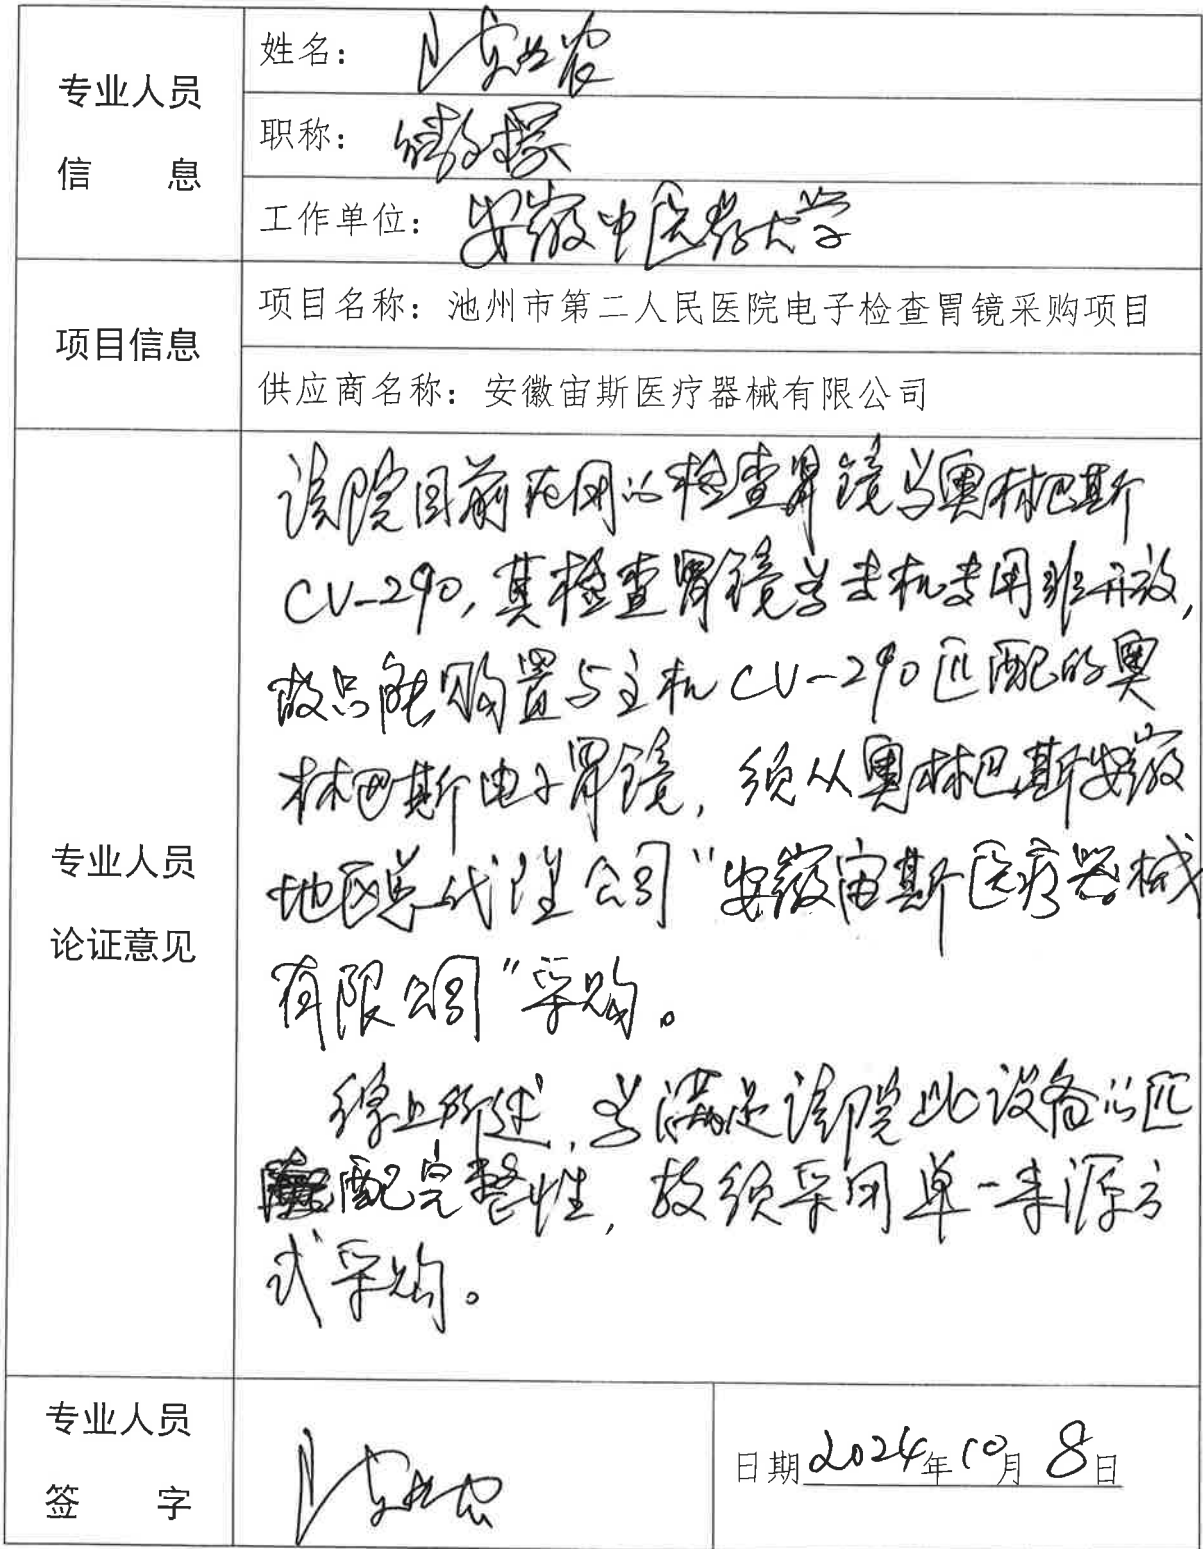 专业人员
信 息
姓名：
职称：副教授
工作单位：安徽中医药大学
项目信息
项目名称：池州市第二人民医院电子检查胃镜采购项目
供应商名称：安徽宙斯医疗器械有限公司
专业人员
论证意见
该院目前在用的检查胃镜为奥林巴斯
CV-290，其检查胃镜为专机专用非开放，
故只能购置与主机CV-290匹配的奥
林巴斯电子胃镜，须从奥林巴斯安徽
地区总代理公司“安徽宙斯医疗器械
有限公司”采购。
综上所述，为满足该院此设备的匹
配完整性，故须采用单一来源方
式采购。
专业人员
签 字
日期2024年10月8日